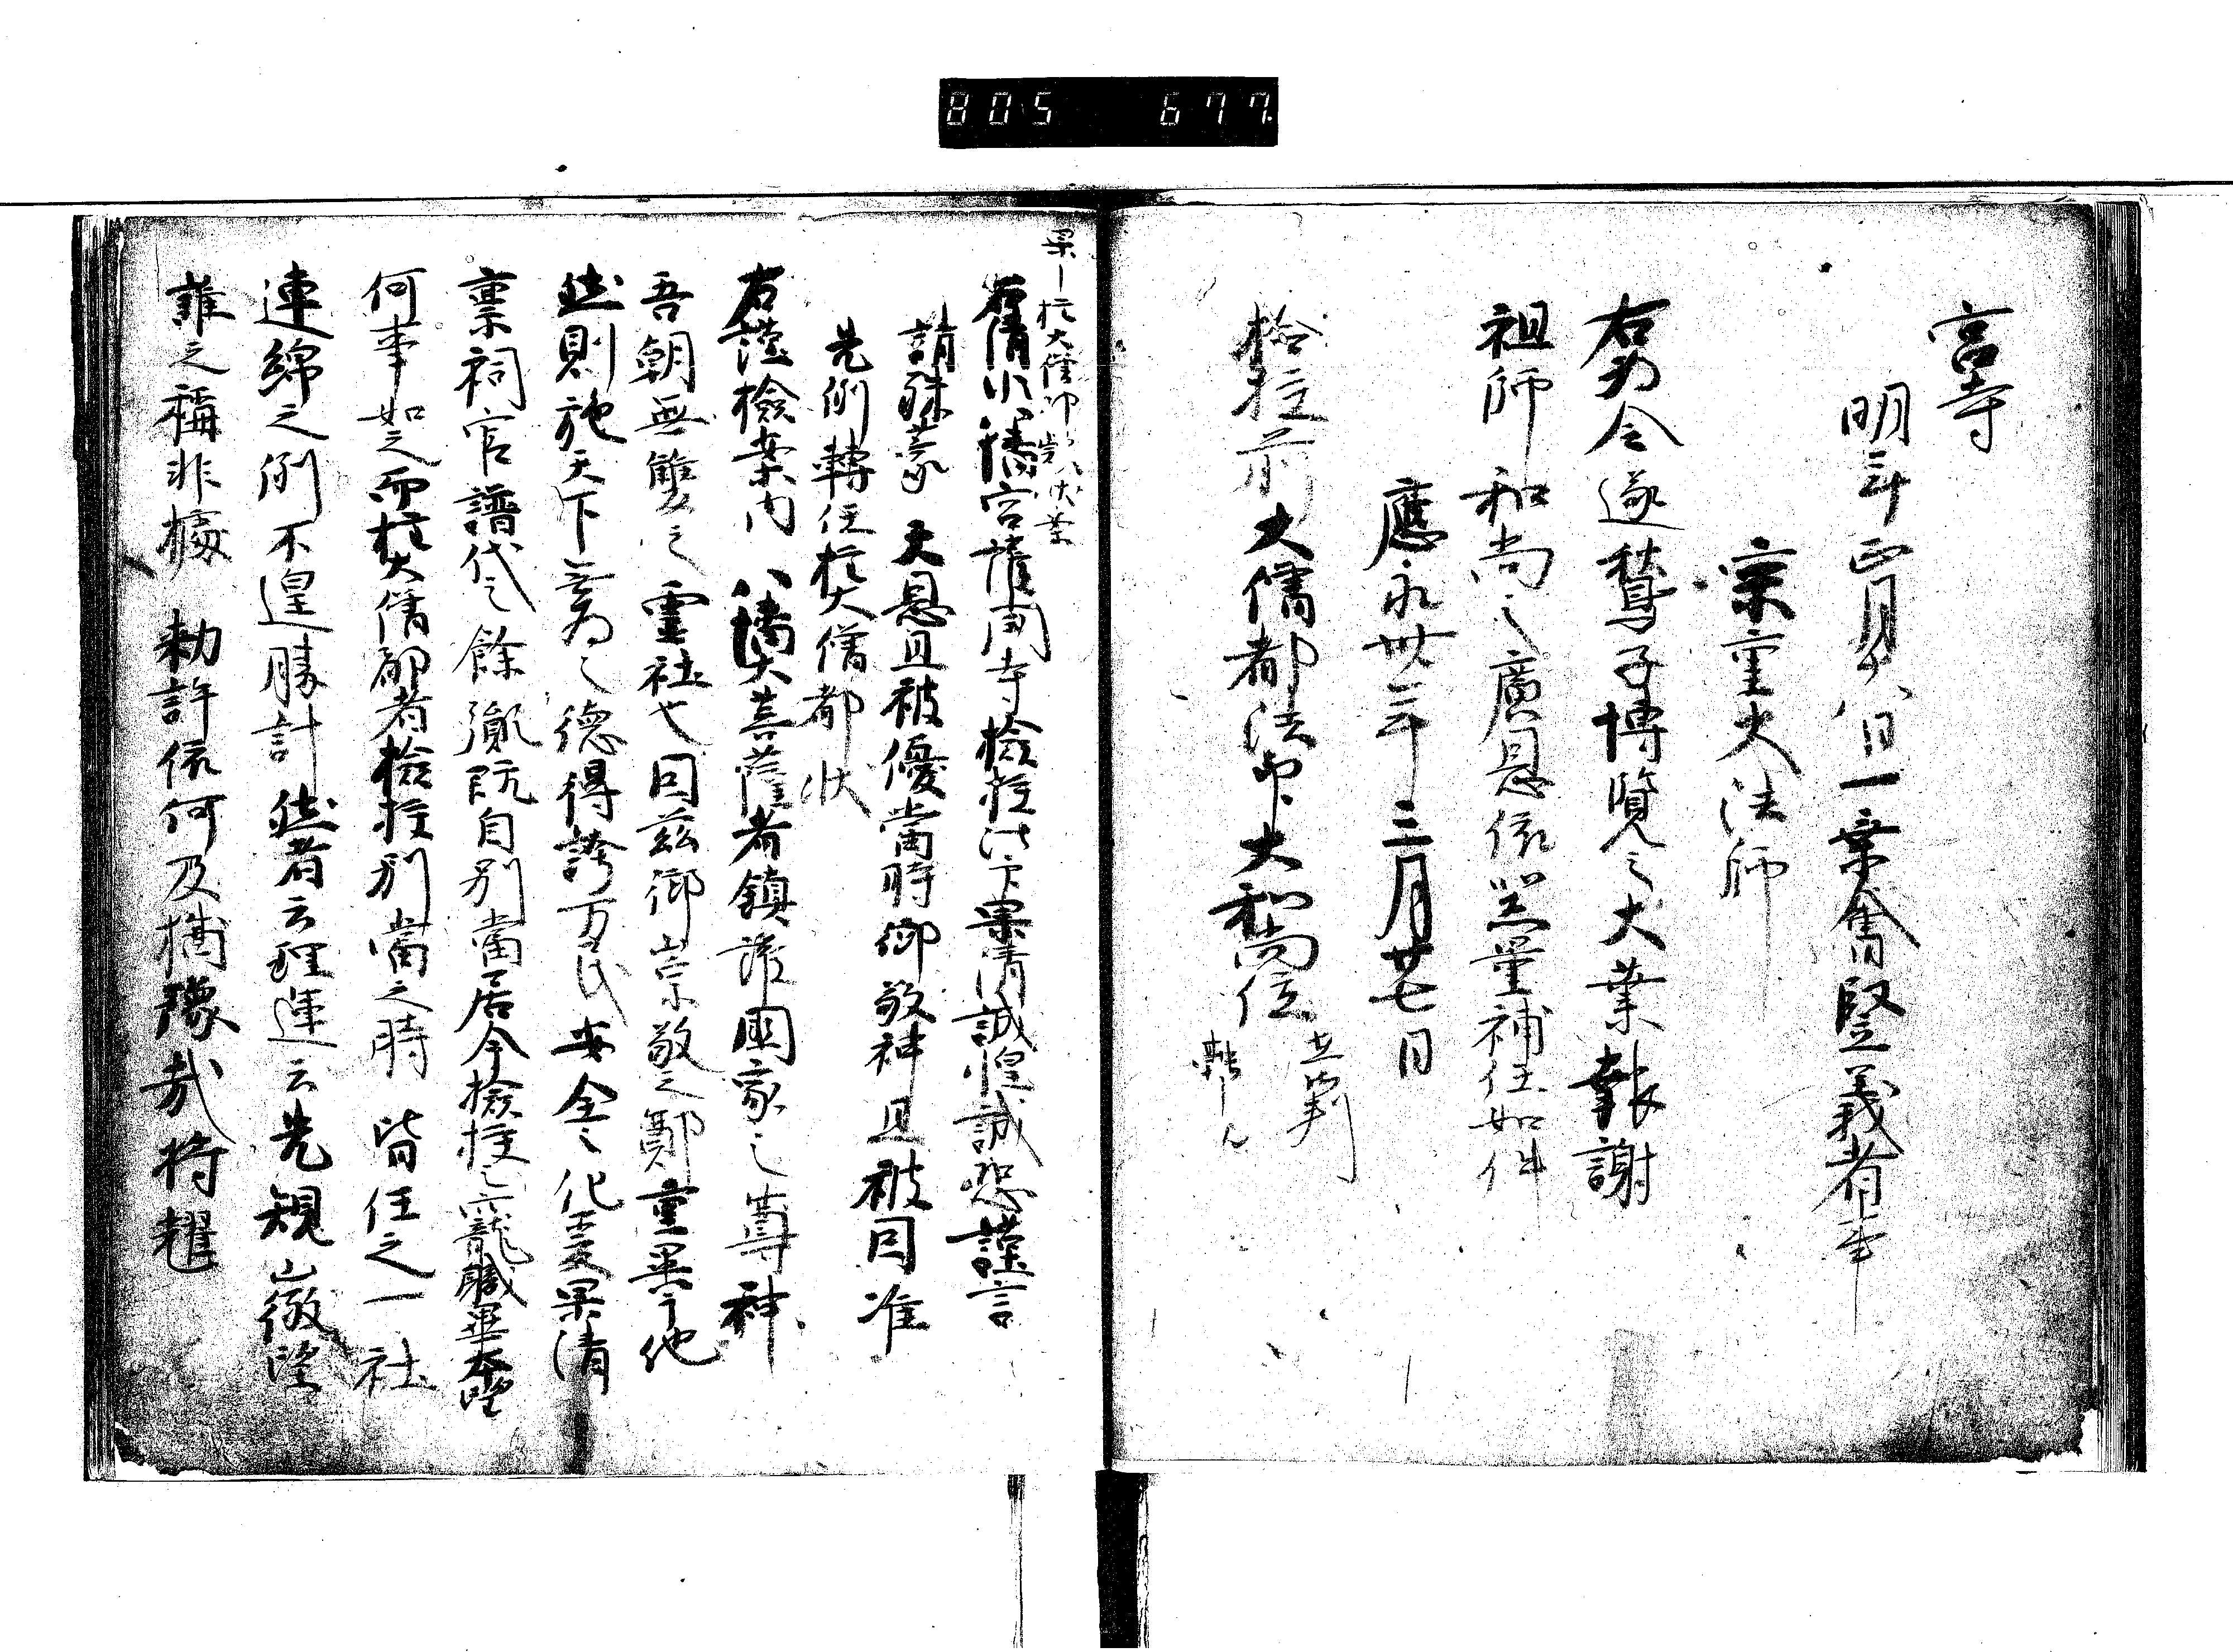 805 677
宮寺
明年正月八日一乗會竪義者事
宗重大法師
右為令遂鶖子博覧之大業報謝
祖師和尚之廣恩依器量補任如件
應永卅三年三月廿七日
檢挍前大僧都法印大和尚位
在判
右清水八幡宮護国寺檢挍法印果清誠惶誠恐謹言
請殊蒙天恩且被優當時御敬神且被因准
先例轉任權大僧都状
右謹檢案内八幡大菩薩者鎮護國家之尊神
吾朝無雙之霊社也因茲御崇敬之鄭重異于他
然則施天下無為之德得誇万民安全之化爰果清
禀祠官譜代之餘胤既自別當居今檢挍之寵職畢
何事如之而權大僧都者檢挍別當之時皆任之一社
連綿之例不遑勝計然者云理運云先規
誰之稱非據勅許依何及猶豫哉將